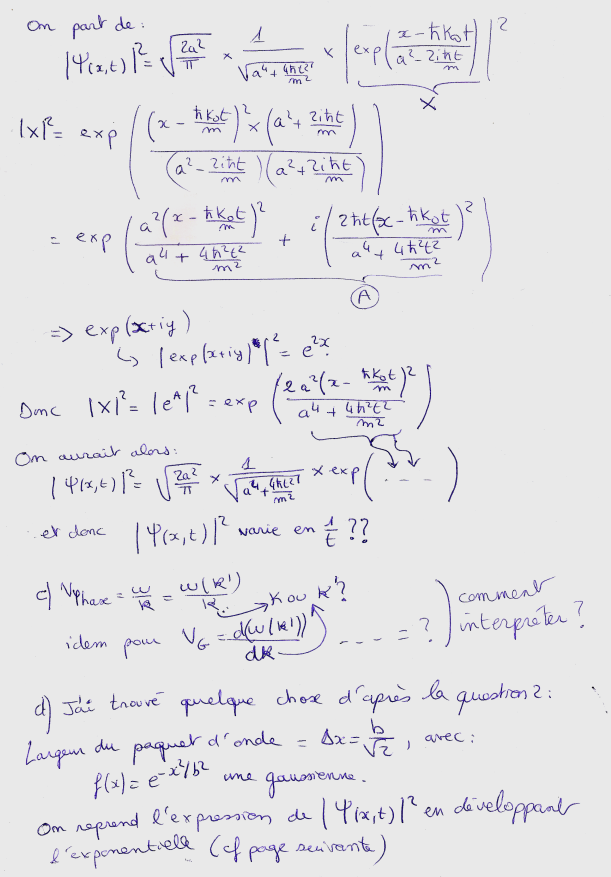 On part de :
|Ψ(x,t)|² = √(2a²/π) × 1/√(a⁴ + 4ħt²/m²) × |exp((x - ħk₀t)/(a² - 2iħt/m))|²
X
|X|² = exp( ((x - ħk₀t/m)² × (a² + 2iħt/m)) / ((a² - 2iħt/m)(a² + 2iħt/m)) )
= exp( a²(x - ħk₀t/m)² / (a⁴ + 4ħ²t²/m²) + i( 2ħt(x - ħk₀t/m)² / (a⁴ + 4ħ²t²/m²) ) )
A
=> exp(x+iy)
↳ |exp(x+iy)|² = e²ˣ.
Donc |X|² = |eᴬ|² = exp( 2a²(x - ħk₀t/m)² / (a⁴ + 4ħ²t²/m²) )
On aurait alors :
|Ψ(x,t)|² = √(2a²/π) × 1/√(a⁴ + 4ħt²/m²) × exp( - - - - )
et donc |Ψ(x,t)|² varie en 1/t ??
c) Vphase = ω/k = ω(k')/k.. → k ou k' ?
idem pour VG = d(ω(k'))/dk - - - - = ? ) comment interpréter ?
d) J'ai trouvé quelque chose d'après la question 2 :
Largeur du paquet d'onde = Δx = b/√2, avec :
f(x) = e^(-x²/b²) une gaussienne.
On reprend l'expression de |Ψ(x,t)|² en développant
l'exponentielle (cf page suivante)